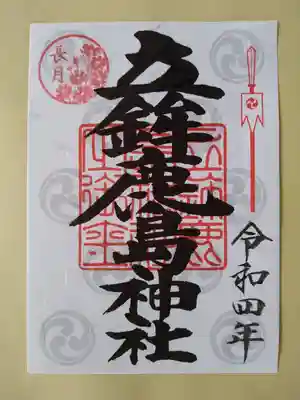 令和四年
立鉾鹿島神社
長月